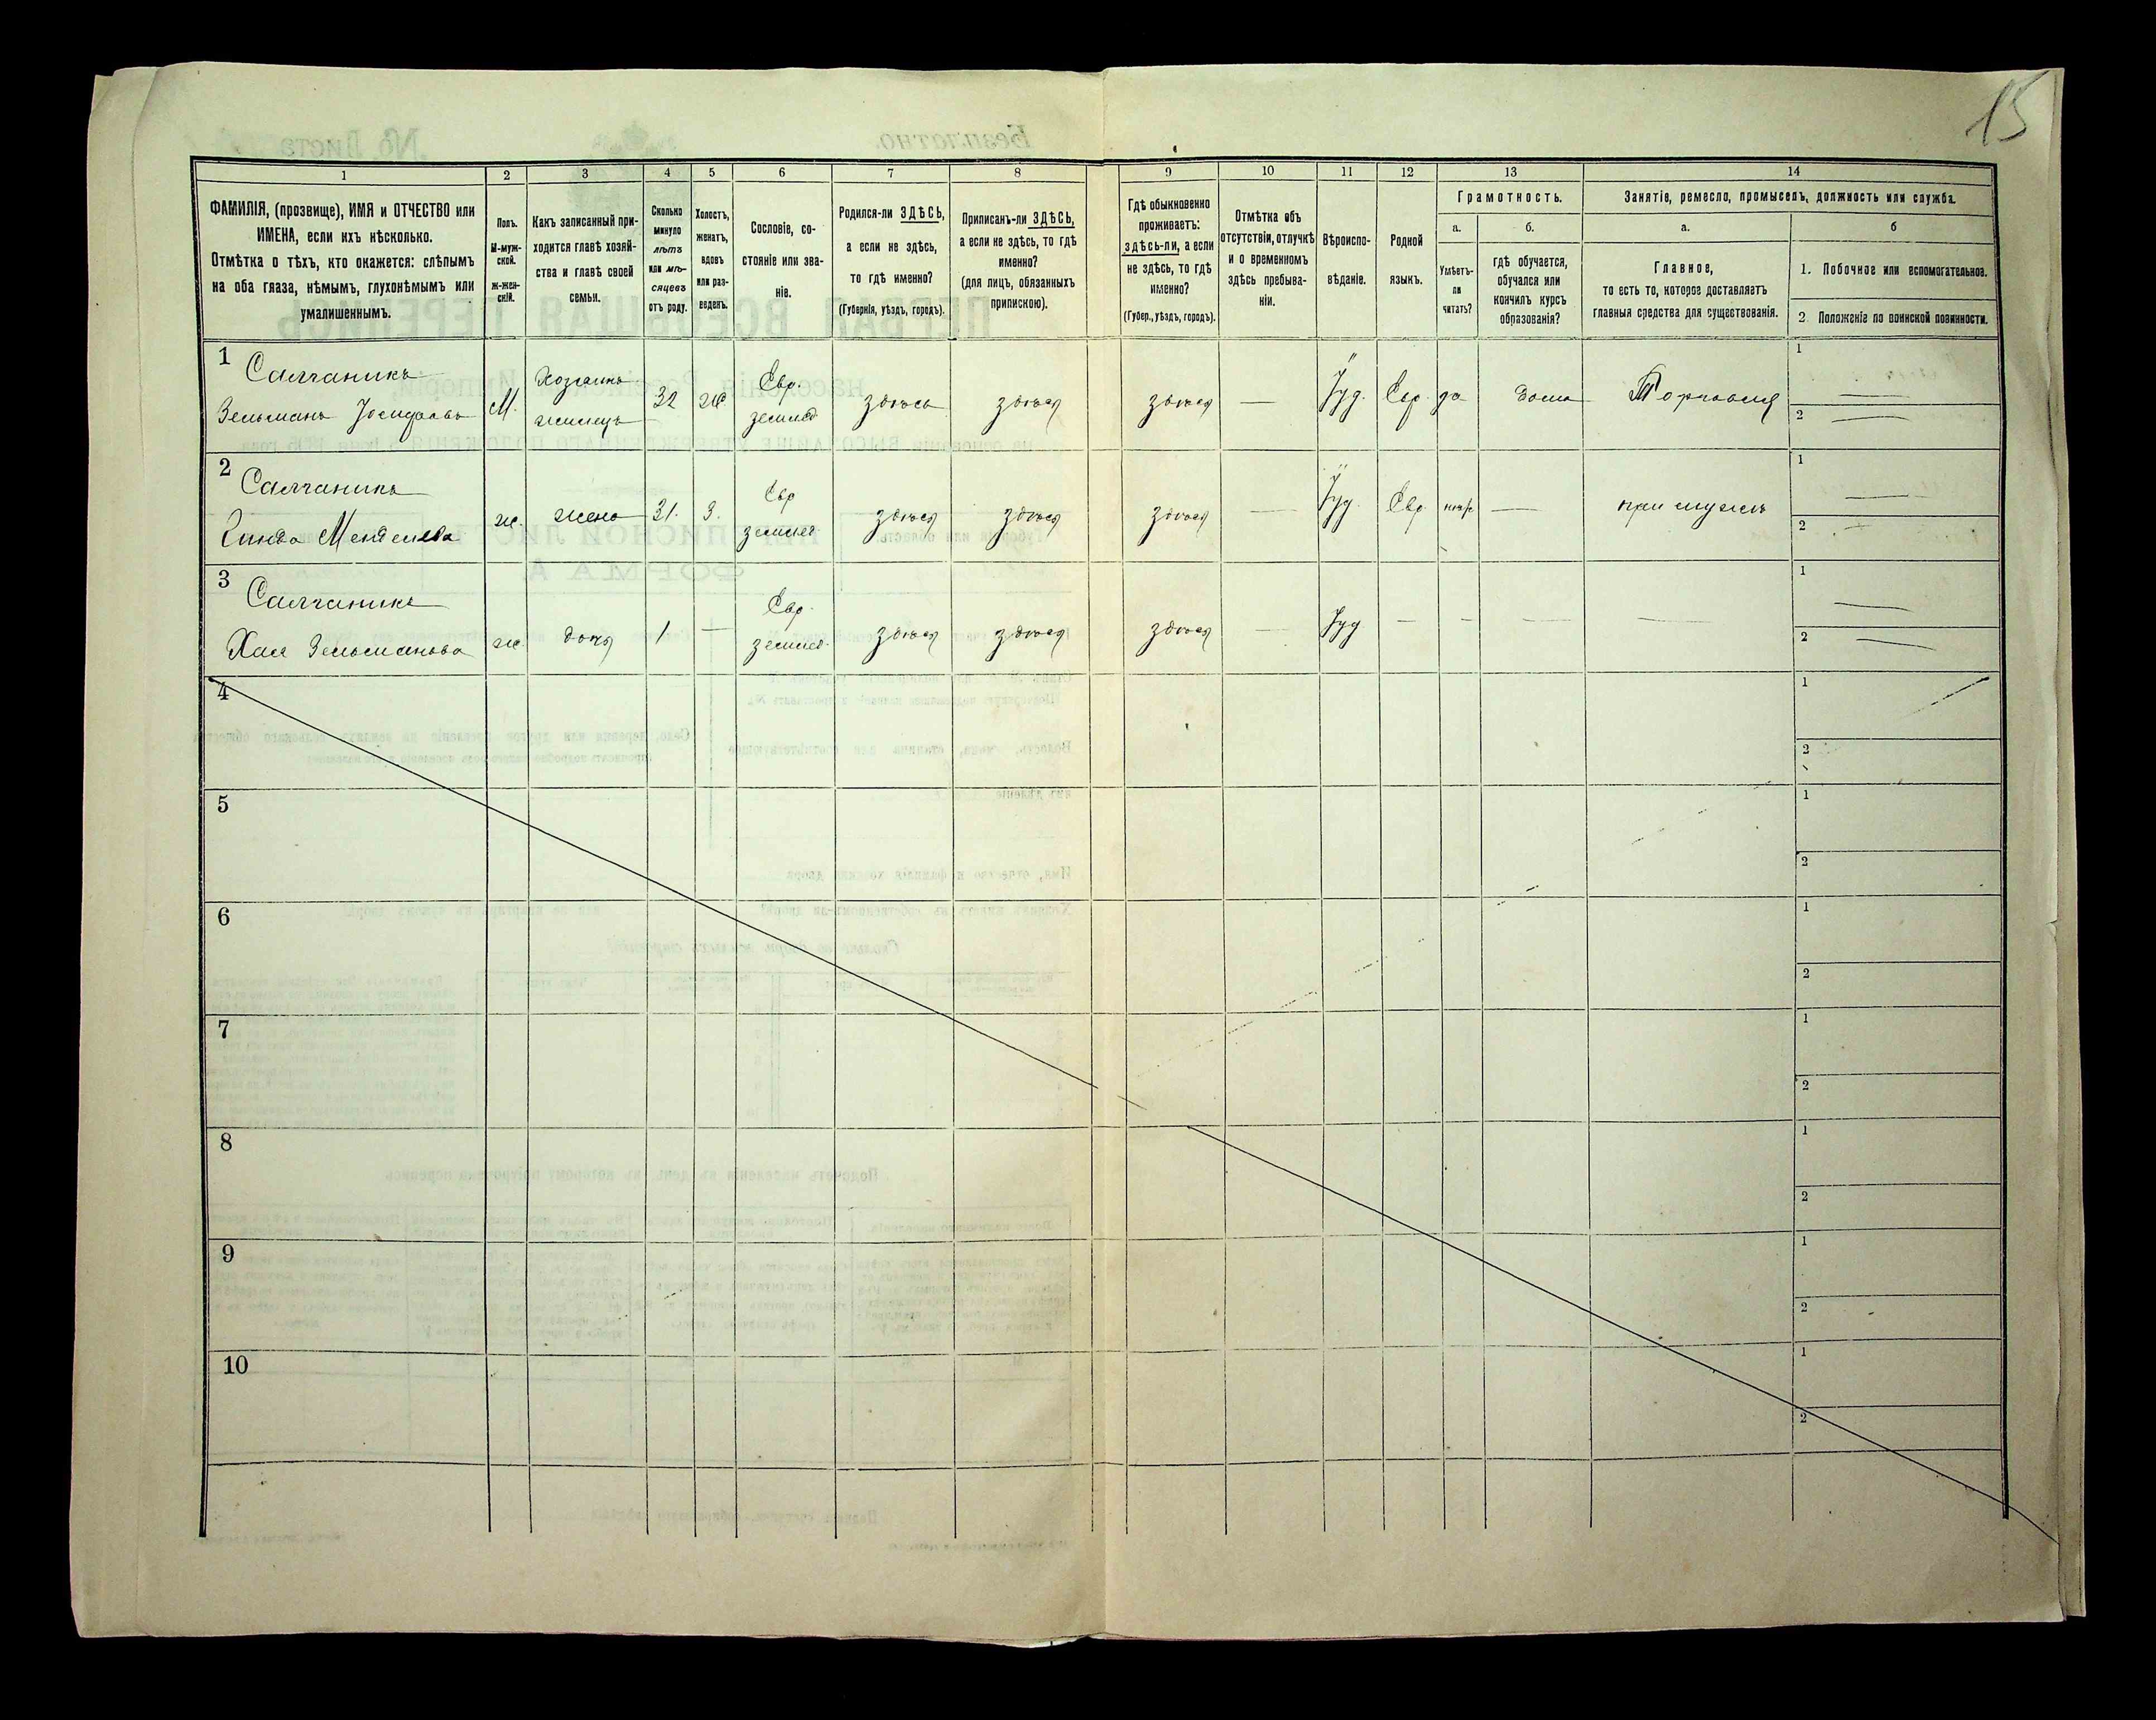 15
1 2 3 4 5 6 7 8 9 10 11 12 13 14
ФАМИЛІЯ, (прозвище), ИМЯ и ОТЧЕСТВО или
ИМЕНА, если ихъ нѣсколько.
Отмѣтка о тѣхъ, кто окажется: слѣпымъ
на оба глаза, нѣмымъ, глухонѣмымъ или
умалишеннымъ.
Полъ.
М-муж-
ской.
ж-жен-
скій.
Какъ записанный при-
ходится главѣ хозяй-
ства и главѣ своей
семьи.
Сколько
минуло
лѣтъ
или мѣ-
сяцевъ
отъ роду.
Холостъ,
женатъ,
вдовъ
или раз-
веденъ.
Сословіе, со-
стояніе или зва-
ніе.
Родился-ли ЗДѢСЬ,
а если не здѣсь,
то гдѣ именно?
(Губернія, уѣздъ, городъ).
Приписанъ-ли ЗДѢСЬ,
а если не здѣсь, то гдѣ
именно?
(для лицъ, обязанныхъ
припискою).
Гдѣ обыкновенно
проживаетъ:
здѣсь-ли, а если
не здѣсь, то гдѣ
именно?
(Губер., уѣздъ, городъ).
Отмѣтка объ
отсутствіи, отлучкѣ
и о временномъ
здѣсь пребыва-
ніи.
Вѣроиспо-
вѣданіе.
Родной
языкъ.
Грамотность.
а.
Умѣетъ-
ли
читать?
б.
гдѣ обучается,
обучался или
кончилъ курсъ
образованія?
Занятіе, ремесло, промыселъ, должность или служба.
а.
Главное,
то есть то, которое доставляетъ
главныя средства для существованія.
б
1. Побочное или вспомогательное.
2. Положеніе по воинской повинности.
1 Салганикъ
Зельманъ
М.
Хозяинъ
жилецъ
32
ж.
Евр.
землед
здѣсь
здѣсь
здѣсь
—
Іуд.
Евр.
да
дома
Торговля
1 —
2 —
2 Салганикъ
Менделева
ж.
жена
31.
З.
Евр
землед
здѣсь
здѣсь
здѣсь
—
Іуд.
Евр
—
при мужѣ
1 —
2 —
3 Салганикъ
Хая Зельманова
ж.
дочь
1
—
Евр.
землед.
здѣсь
здѣсь
здѣсь
—
Іуд
— — — —
1 —
2 —
4
1
2
5
1
2
6
1
2
7
1
2
8
1
2
9
1
2
10
1
2